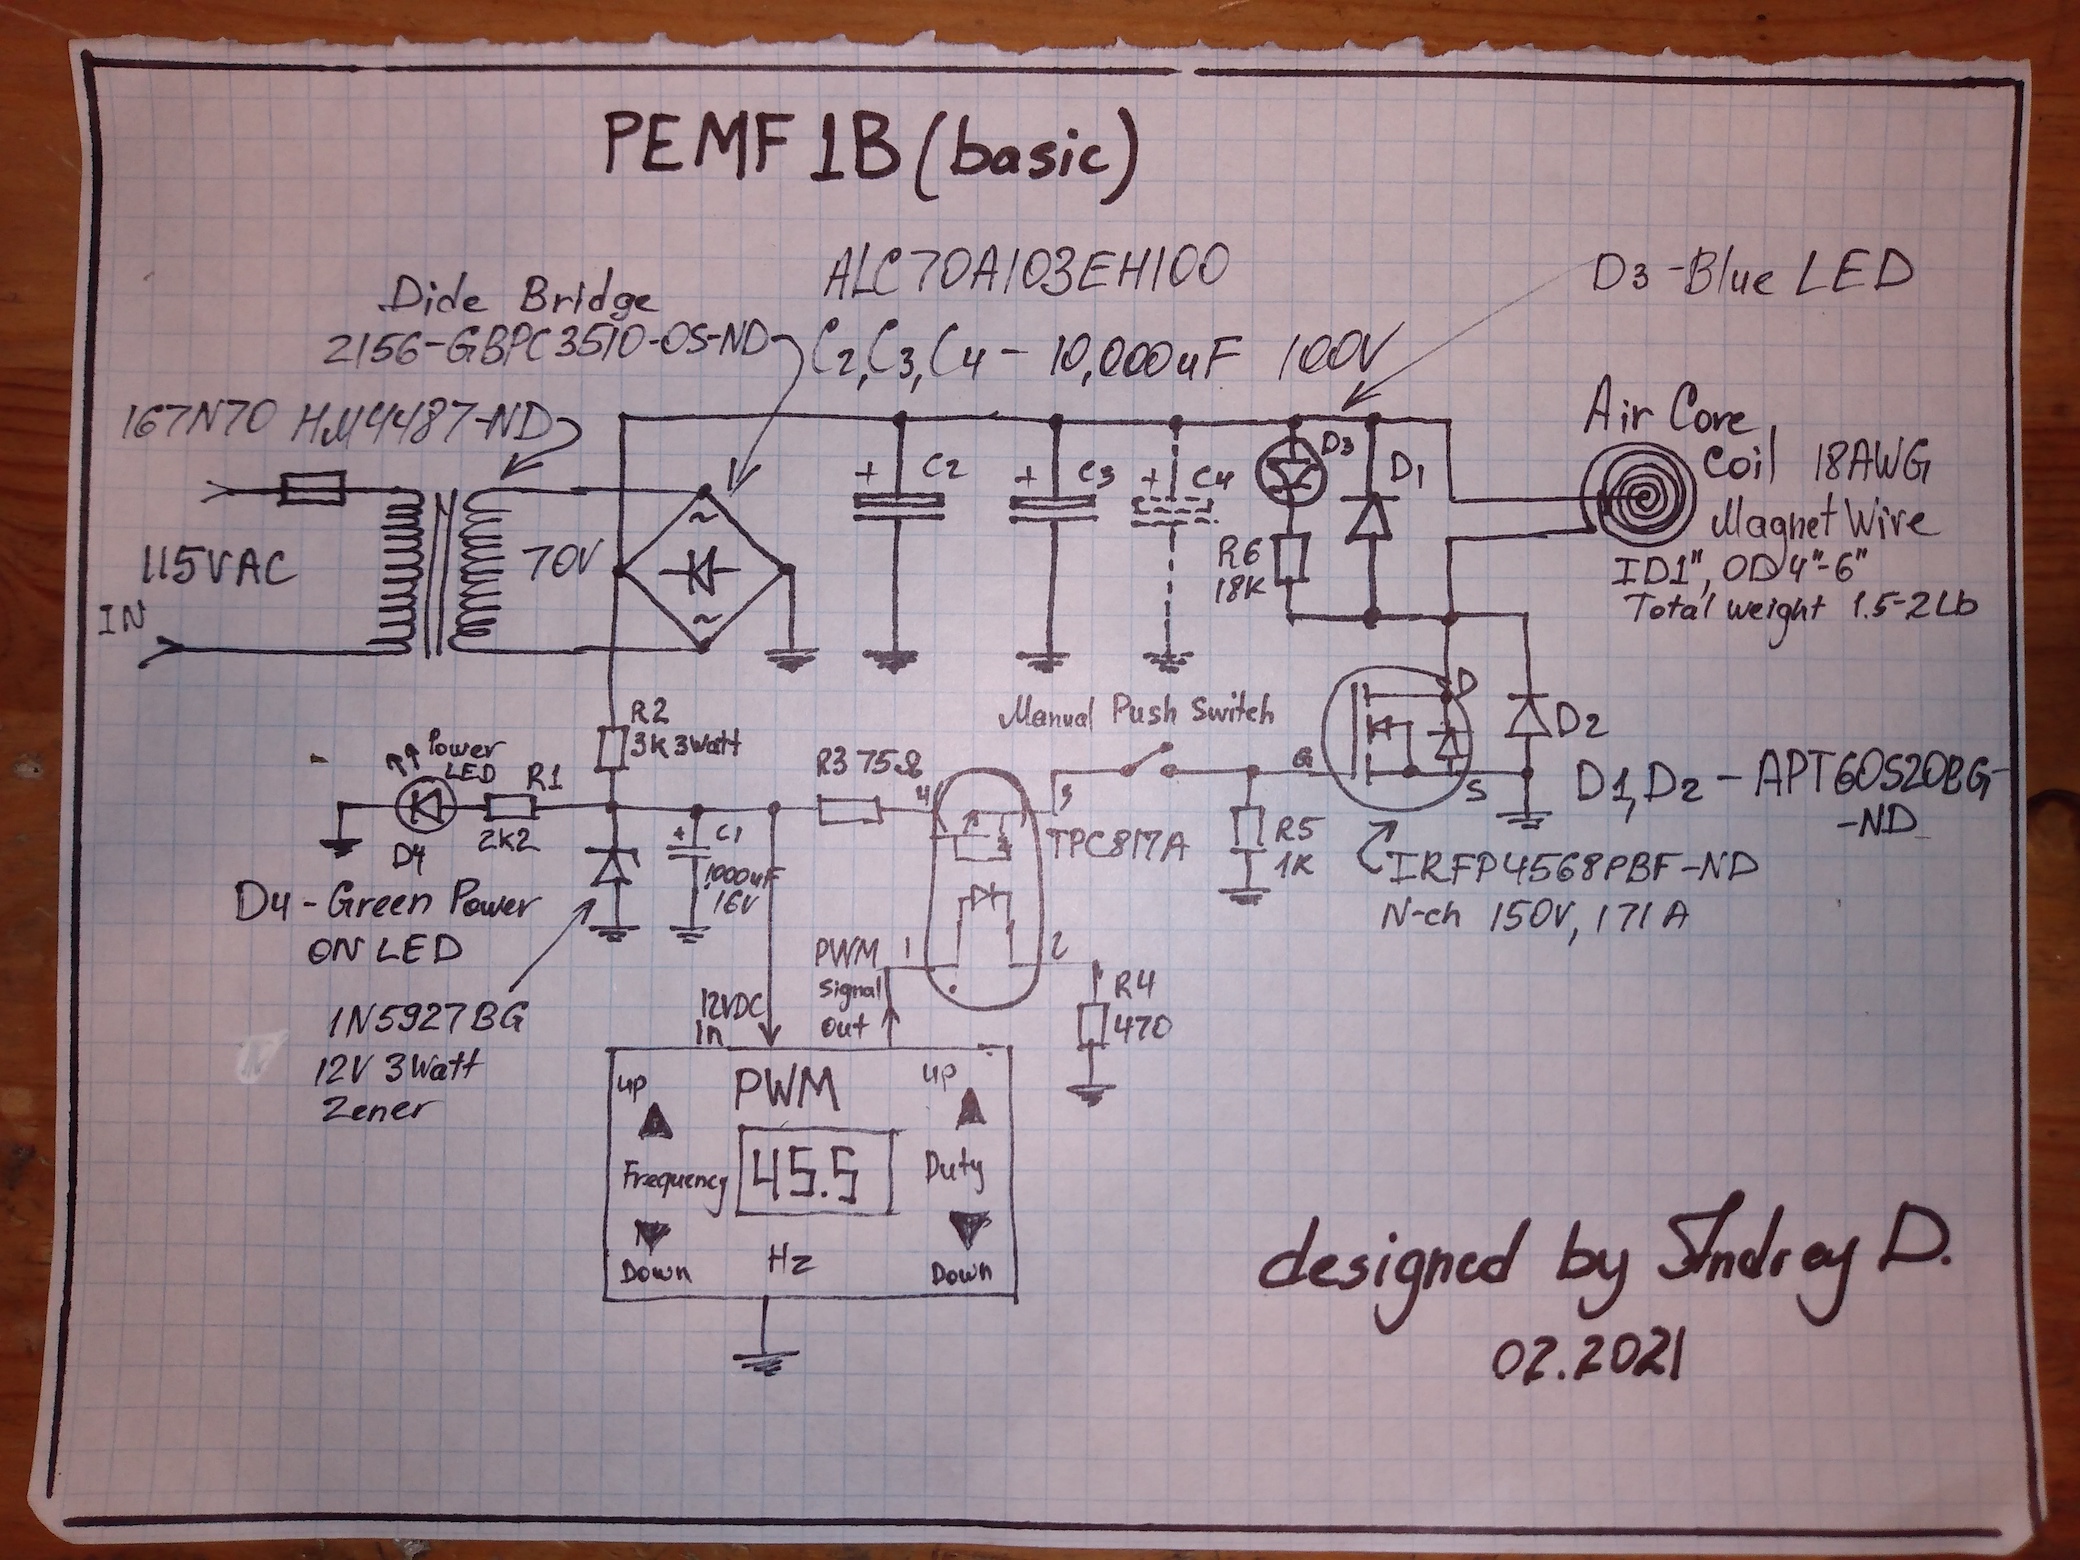 PEMF 1B (basic)
ALC70A103EH100
D3-Blue LED
Dide Bridge
2156-GBPC3510-OS-ND
C2, C3, C4 - 10,000uF 100V
167N70 HM4487-ND
Air Core
Coil 18AWG
Magnet Wire
ID1", OD4"-6"
Total weight 1.5-2Lb
+ C2
+ C3
+ C4
D3
D1
~
~
115VAC
IN
70V
R6
18K
Manual Push Switch
R2
3K 3Watt
Power
LED
R1
2K2
D4
R3 75Ω
4
3
TPC817A
G
D
S
D2
D1, D2 - APT60S20BG-
-ND
+ C1
1000uF
16V
R5
1K
IRFP4568PBF-ND
N-ch 150V, 171A
D4-Green Power
ON LED
1N5927BG
12V 3Watt
Zener
12VDC
In
PWM
Signal
out
1
2
R4
470
up
PWM
up
Frequency
45.5
Duty
Down
Hz
Down
designed by Andrey D.
02.2021